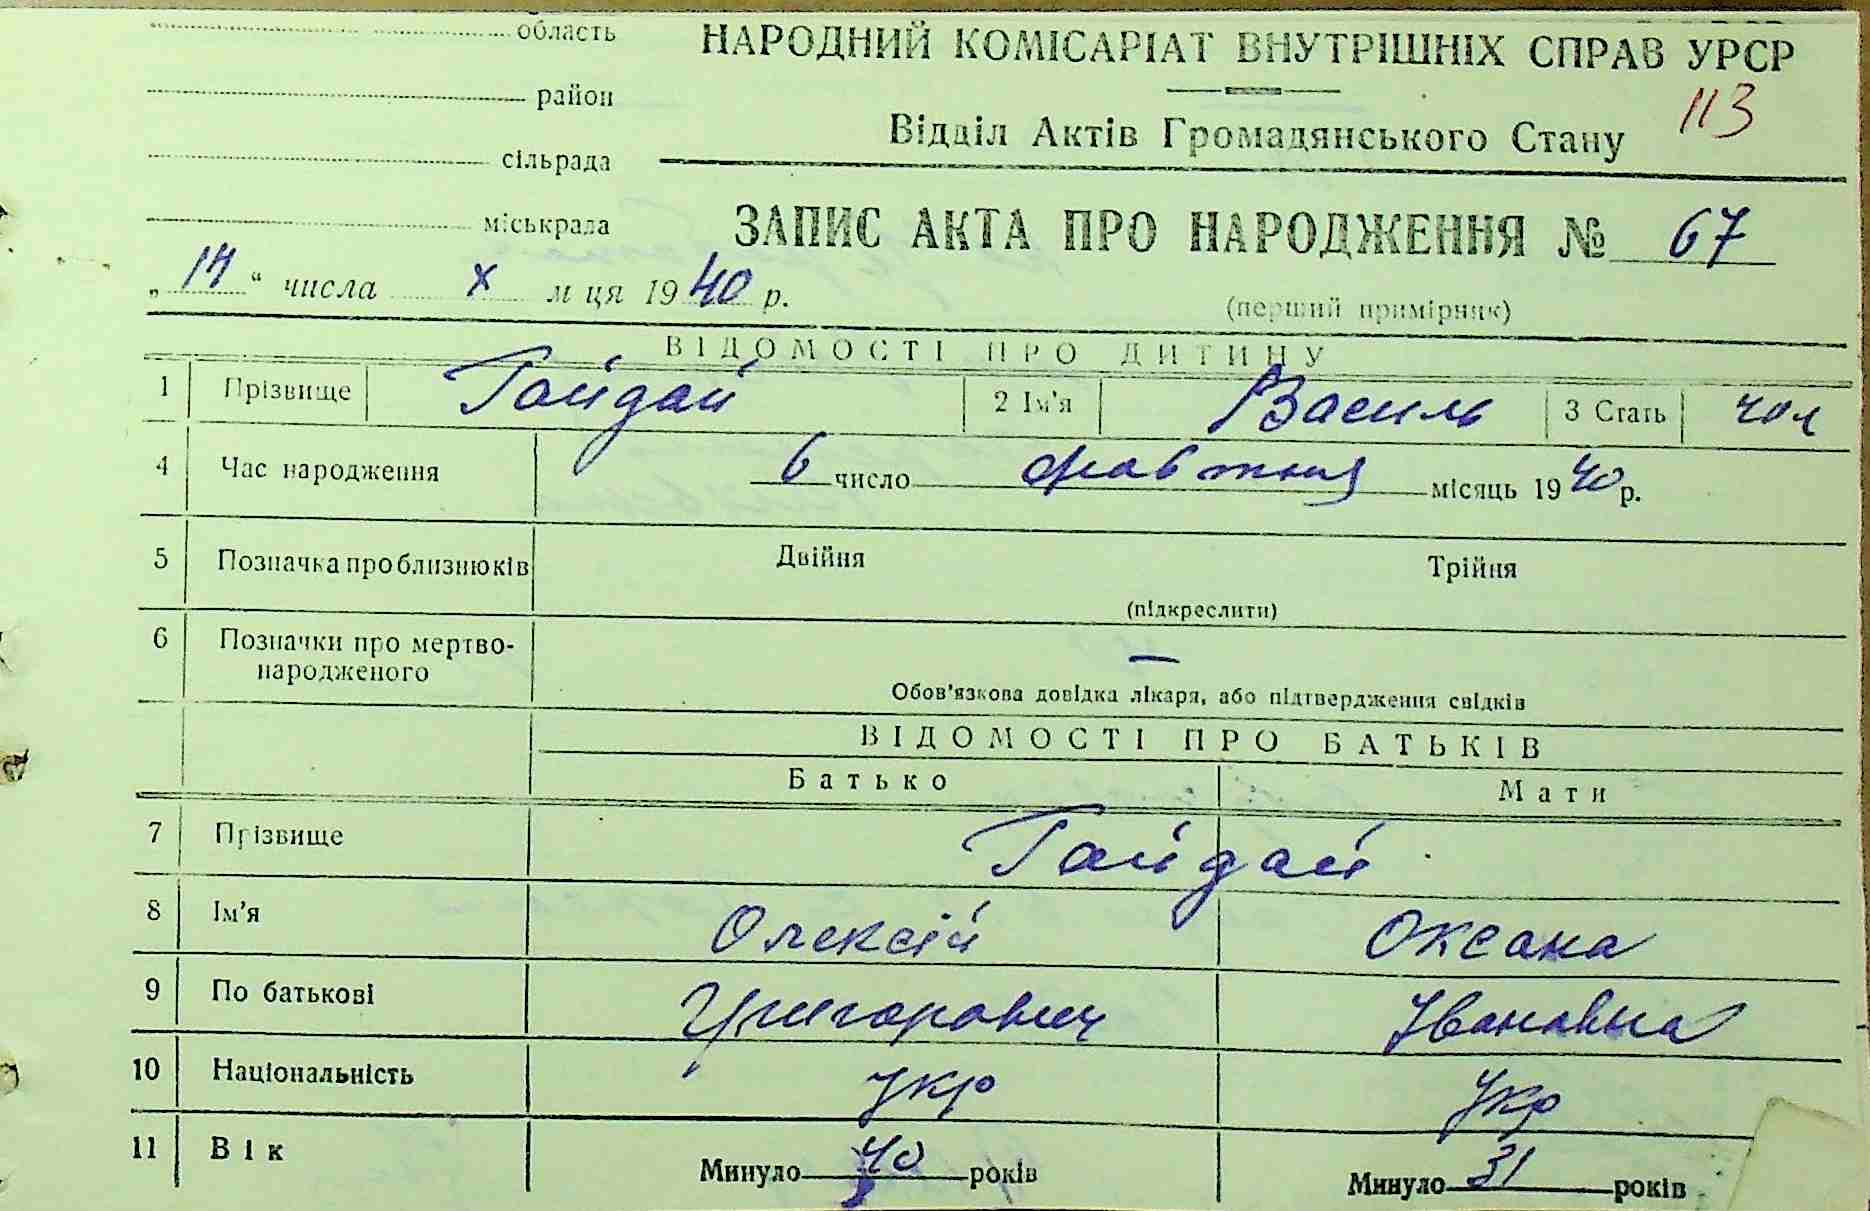 область
НАРОДНИЙ КОМІСАРІАТ ВНУТРІШНІХ СПРАВ УРСР
район
113
Відділ Актів Громадянського Стану
сільрада
міськрада
ЗАПИС АКТА ПРО НАРОДЖЕННЯ № 67
„14“ числа X м ця 1940 р.
(перший примірник)
ВІДОМОСТІ ПРО ДИТИНУ
1 Прізвище Гайдай 2 Ім'я Василь 3 Стать чол
4 Час народження 6 число жовтня місяць 1940 р.
5 Позначка про близнюків Двійня Трійня
(підкреслити)
6 Позначки про мертво-
народженого —
Обов'язкова довідка лікаря, або підтвердження свідків
ВІДОМОСТІ ПРО БАТЬКІВ
Батько Мати
7 Прізвище Гайдай
8 Ім'я Олексій Оксана
9 По батькові Григорович Івановна
10 Національність укр Укр
11 Вік Минуло 40 років Минуло 31 років